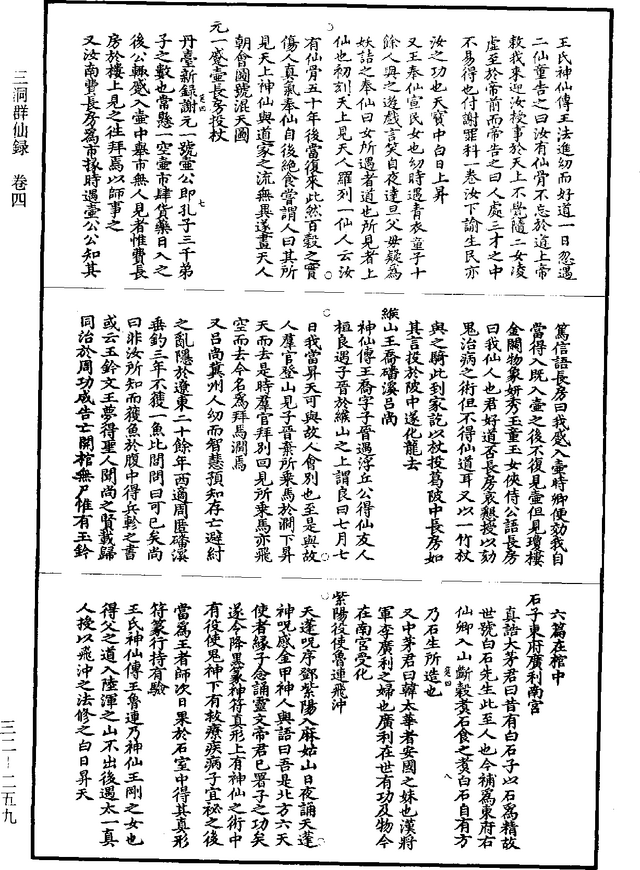 王氏神仙傳王法進幼而好道一日忽遇
二仙童告之曰汝有仙骨不忘於道上帝
敕我來迎汝授事於天上不覺隨二女凌
虛至於帝前而帝告之曰人處三才之中
不易得也付謝罪科一卷汝下諭生民亦
汝之功也天寶中白日上昇
又王奉仙宣民女也幼時遇青衣童子十
餘人與之遊戲言笑自夜達旦父母疑為
妖詰之奉仙曰女所遇者道也所見者上
仙也初刻天上見天人羅列一仙人云汝
有仙骨五十年後當復來此然百穀之實
傷人真氣奉仙自後絕食嘗謂人曰其所
見天上神仙與道家之流無異遂畫天人
朝會圖號混天圖
元一感壺長房投杖
丹臺新錄謝元一號壺公即孔子三千弟
子之數也常懸一空壺市肆貨藥日入之
後公輒感入壺中舉市無人見者惟費長
房於樓上見之往拜焉以師事之
又汝南費長房為市掾時遇壺公公知其
篤信語長房曰我感入壺時卿便効我自
當得入既入壺之後不復見壺但見瓊樓
金闕物象妍秀玉童玉女俠侍公語長房
曰我仙人也君好道否長房哀懇授以劾
鬼治病之術但不得仙道耳又以一竹杖
與之騎此到家訖以杖投葛陂中長房如
其言投於陂中遂化龍去
緱山王喬磻溪呂尚
神仙傳王喬字子晉遇浮丘公得仙友人
桓良遇子晉於緱山之上謂良曰七月七
日我當昇天可與故人會別也至是與故
人羣官登山見子晉棄所乘馬於澗下昇
天而去是時羣官拜別回見所乘馬亦飛
空而去今名為拜馬澗焉
又呂尚冀州人幼而智慧預知存亡避紂
之亂隱於遼東二十餘年西適周匿磻溪
垂釣三年不獲一魚比閭問曰可已矣尚
曰非汝所知而獲魚於腹中得兵鈐之書
或云玉鈐文王夢得聖人聞尚之賢載歸
同治於周功成告亡開棺無尸惟有玉鈐
六篇在棺中
石子東府廣利南宮
真誥大茅君曰昔有白石子以石為精故
世號白石先生此至人也今補為東府右
仙卿入山斷穀煮石食之煮白石自有方
乃石生所造也
又中茅君曰韓太華者安國之妹也漢將
軍李廣利之婦也廣利在世有功及物今
在南宮受化
紫陽役使魯連飛沖
天蓬呪序鄧紫陽入麻姑山日夜誦天蓬
神呪感金甲神人與語曰吾是北方六天
使者緣子念誦靈文帝君已署子之功矣
遂令降黑篆神符真形上有神仙之術中
有役使鬼神下有救療疾病子宜祕之後
當為王者師次日果於石室中得其真形
符篆行持有驗
王氏神仙傳王魯連乃神仙王剛之女也
得父之道入陸渾之山不出後遇太一真
人授以飛沖之法修之白日昇天
三洞群仙録 卷四
三二－二五九